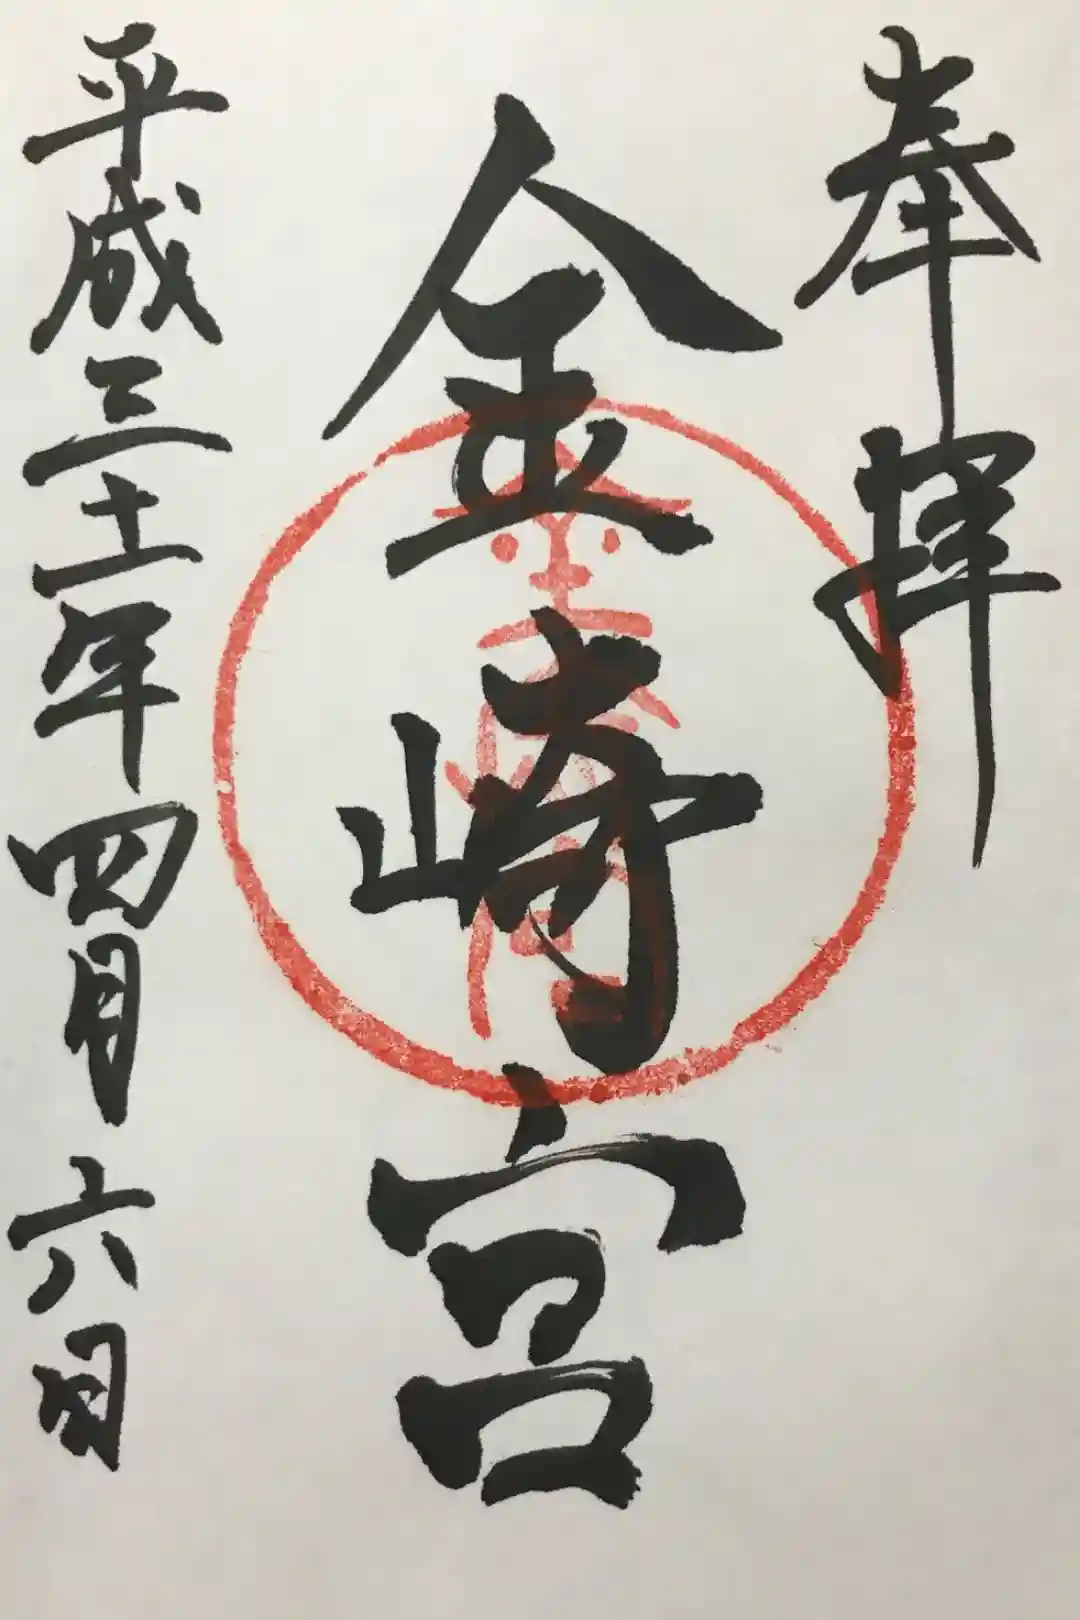 奉拝
金崎宮
平成三十一年四月六日
金崎宮